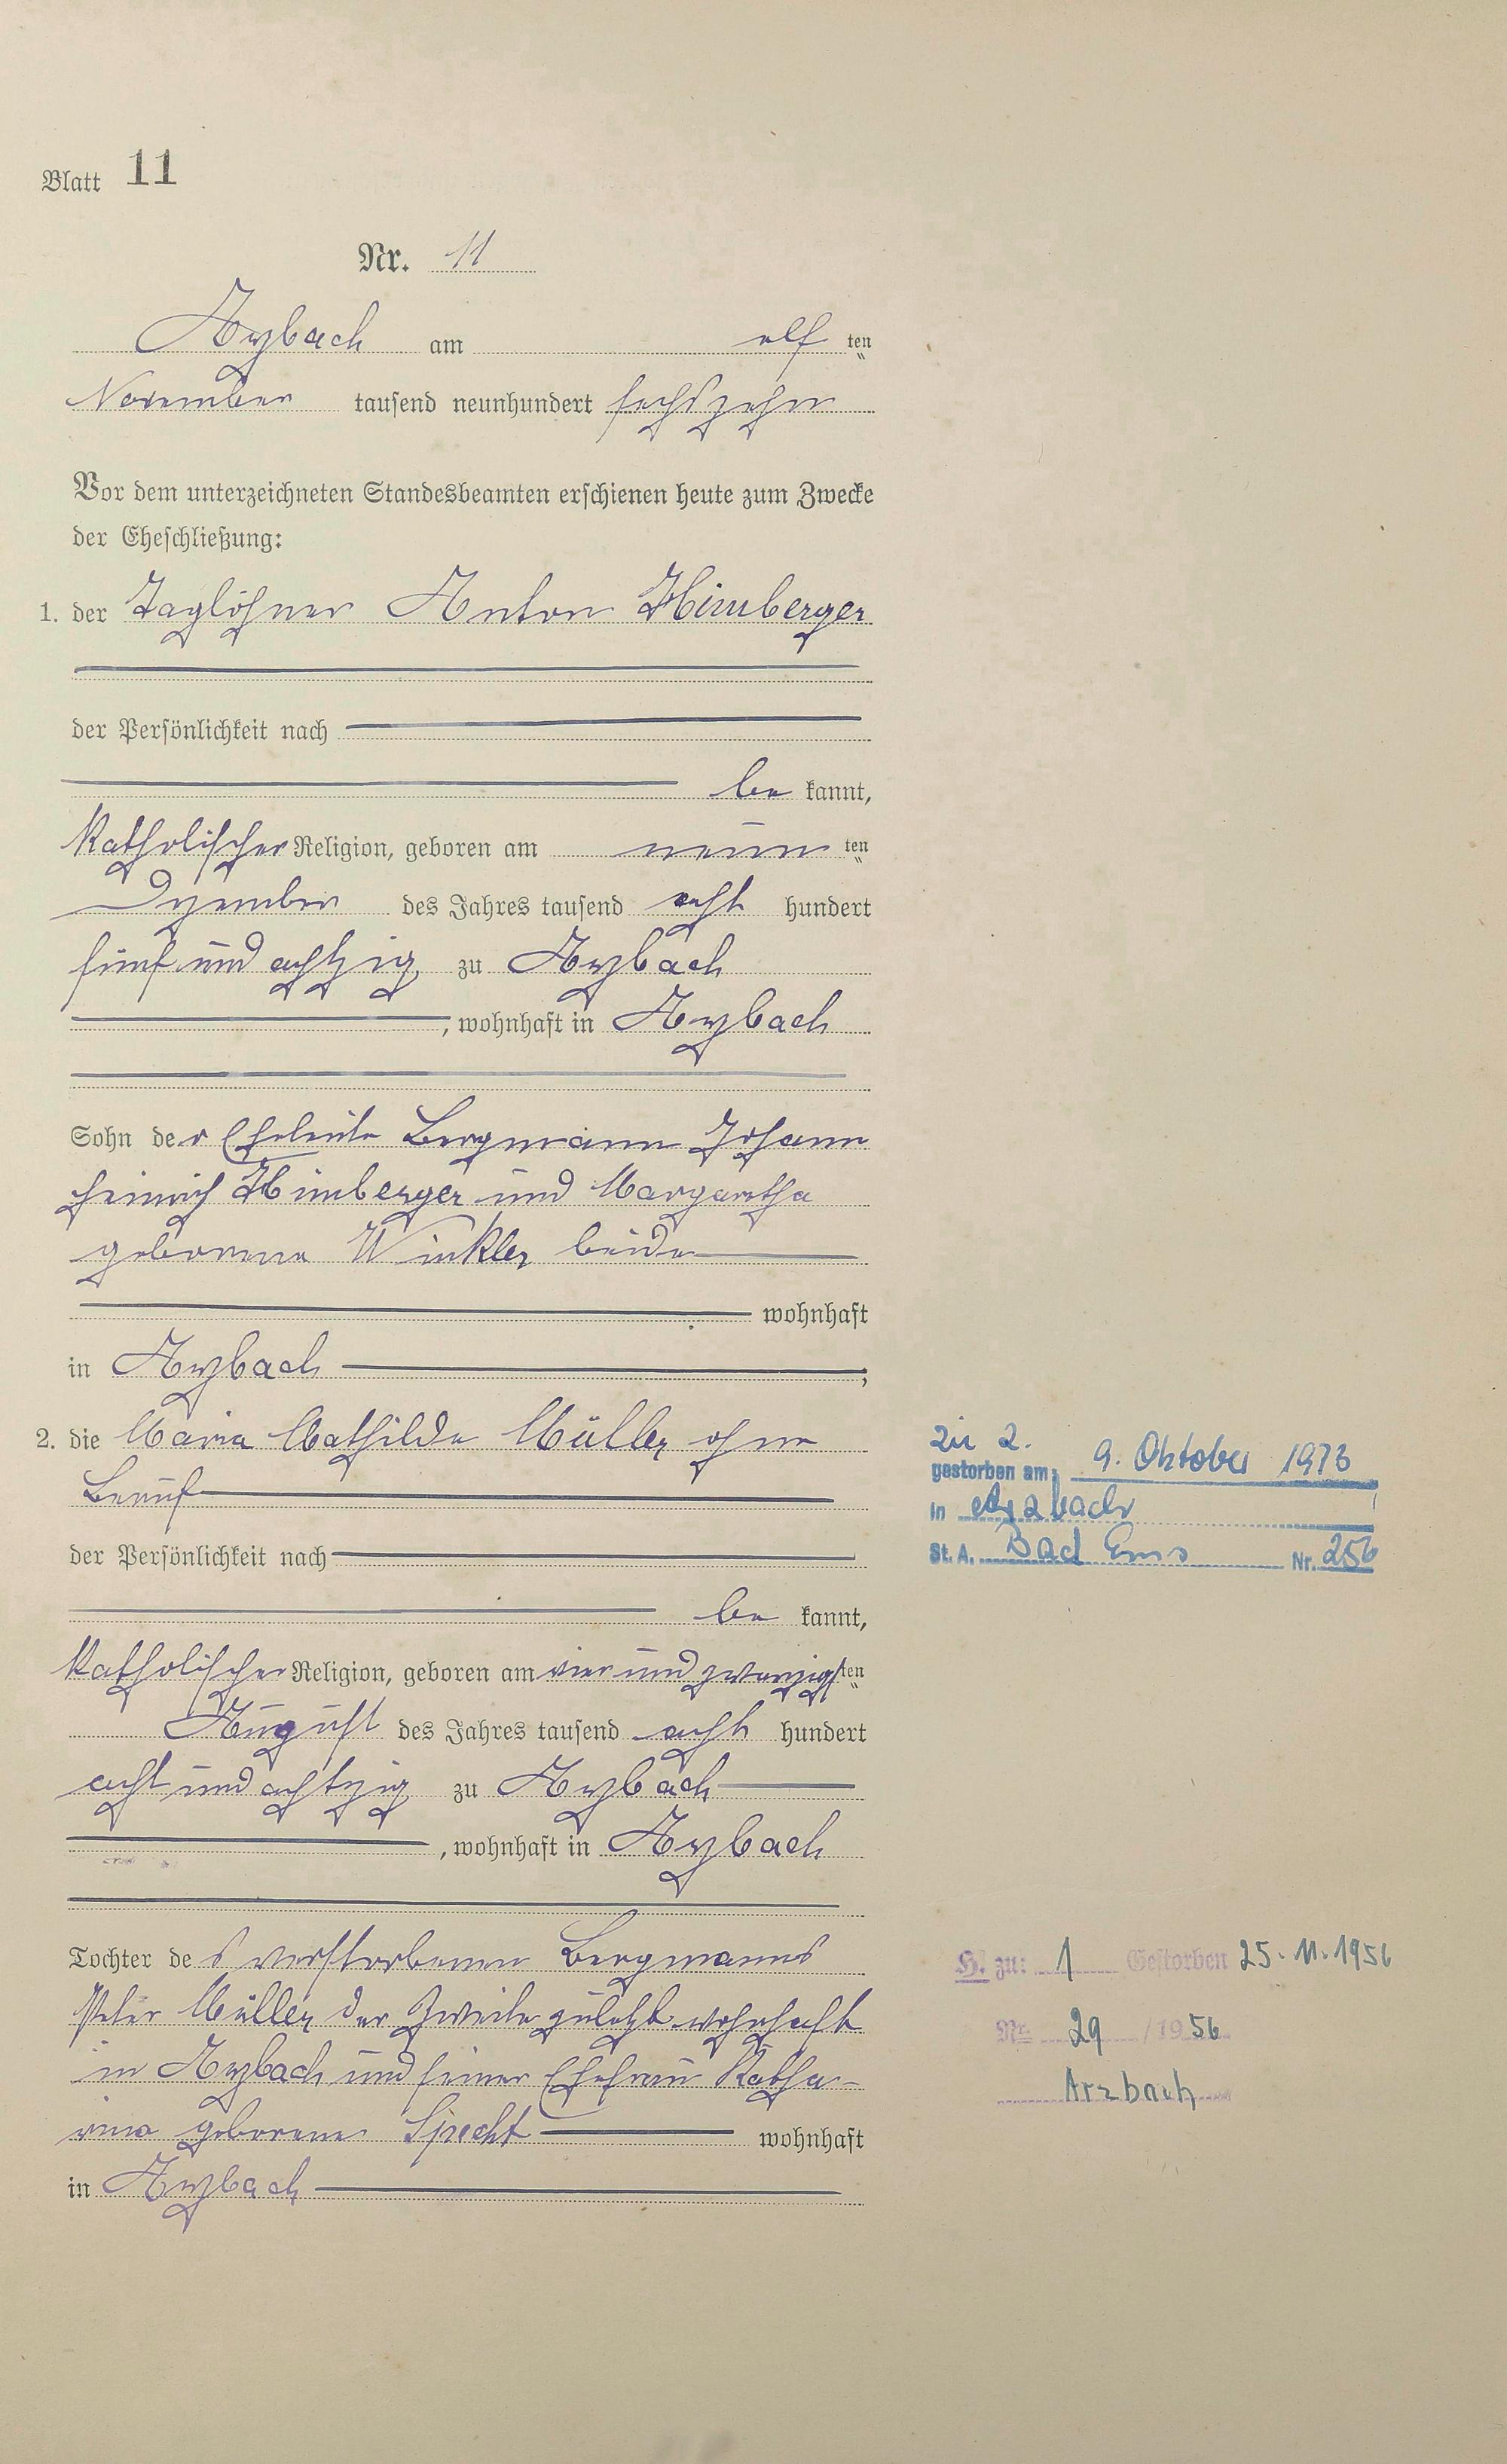 Blatt 11
Nr. 11
Arzbach am elf ten
November tausend neunhundert sechszehn
Vor dem unterzeichneten Standesbeamten erschienen heute zum Zwecke
der Eheschließung:
1. der Taglöhner Anton Himberger
der Persönlichkeit nach
be kannt,
katholischer Religion, geboren am neun ten
Dezember des Jahres tausend acht hundert
fünf und achtzig zu Arzbach
, wohnhaft in Arzbach
Sohn der Eheleute Bergmann Johann
Heinrich Himberger und Margaretha
geborene Winkler beide
wohnhaft
in Arzbach ;
2. die Maria Mathilde Müller ohne
Beruf
der Persönlichkeit nach
be kannt,
katholischer Religion, geboren am vier und zwanzigsten
August des Jahres tausend acht hundert
acht und achtzig zu Arzbach
, wohnhaft in Arzbach
Tochter des verstorbenen Bergmanns
Peter Müller der Zweite zuletzt wohnhaft
in Arzbach und seiner Ehefrau Katha-
rina geborene Specht wohnhaft
in Arzbach
zu 2.
gestorben am: 9. Oktober 1973
in Arzbach
St. A. Bad Ems Nr. 256
H. zu: 1 Gestorben 25.11.1956
Nr. 29 / 1956
Arzbach